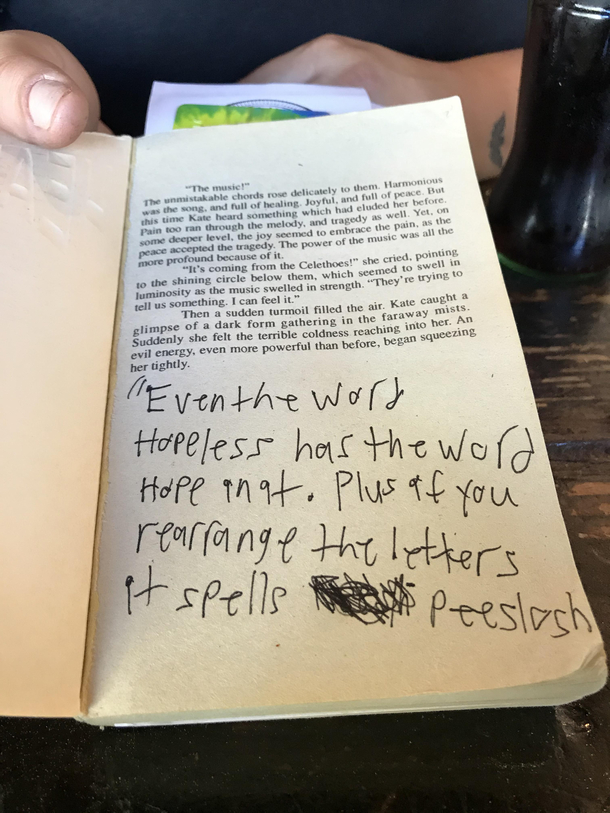 "The music!"
The unmistakable chords rose delicately to them. Harmonious
was the song, and full of healing. Joyful, and full of peace. But
this time Kate heard something which had eluded her before.
Pain too ran through the melody, and tragedy as well. Yet, on
some deeper level, the joy seemed to embrace the pain, as the
peace accepted the tragedy. The power of the music was all the
more profound because of it.
"It's coming from the Celethoes!" she cried, pointing
to the shining circle below them, which seemed to swell in
luminosity as the music swelled in strength. "They're trying to
tell us something. I can feel it."
Then a sudden turmoil filled the air. Kate caught a
glimpse of a dark form gathering in the faraway mists.
Suddenly she felt the terrible coldness reaching into her. An
evil energy, even more powerful than before, began squeezing
her tightly.
"Even the word
Hopeless has the word
Hope in it. Plus if you
rearrange the letters
it spells peeslosh